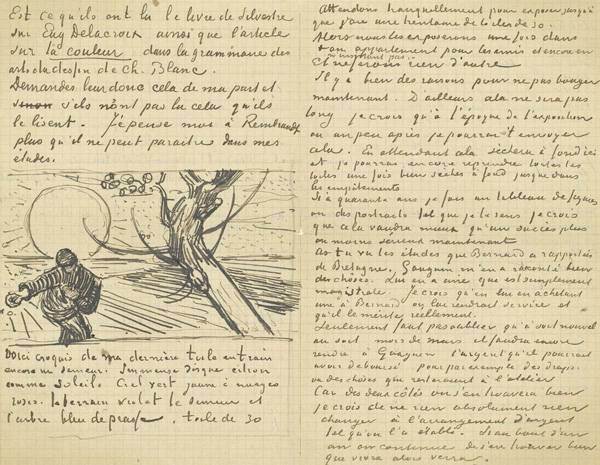 Est ce qu'ils ont lu le livre de Silvestre
sur Eug Delacroix ainsi que l'article
sur la couleur dans la grammaire des
arts du dessin de Ch. Blanc.
Demandes leur donc cela de ma part et
sinon s'ils n'ont pas lu cela qu'ils
le lisent. J'pense moi à Rembrandt
plus qu'il ne peut paraitre dans mes
études.
Voici croquis de ma dernière toile en train
encore un semeur. Immense disque citron
comme soleil. Ciel vert jaune à nuages
roses. le terrain violet le semeur et
l'arbre bleu de prusse. toile de 30
Attendons tranquillement pour exposer jusqu'à
que j'aie une trentaine de toiles de 30.
Alors nous les exposerons une fois dans
ton appartement pour les amis et encore en
n'insistant pas.
Et ne ferons rien d'autre
Il y a bien des raisons pour ne pas bouger
maintenant. D'ailleurs cela ne sera pas
long je crois qu'à l'époque de l'exposition
ou un peu après je pourrai t'envoyer
cela. En attendant cela sechera à fond ici
et je pourrai encore reprendre toutes les
toiles une fois bien sèches à fond jusque dans
les empâtements
Si à quarante ans je fais un tableau de figures
ou des portraits tel que je le sens je crois
que cela vaudra mieux qu'un succès plus
ou moins serieux maintenant
As tu vu les études que Bernard a rapportés
de Bretagne, Gauguin m'en a raconté bien
des choses. Lui en a une que est simplement
magistrale. Je crois qu'en lui en achetant
une à Bernard on lui rendrait service et
qu'il le mérite réellement.
Seulement faut pas oublier qu'à sout nouvel
au soit mois de mars il faudra encore
rendre à Gauguin l'argent qu'il pourrait
avoir deboursé pour par exemple des draps
ou des choses qui resteraient à l'atelier
Car des deux côtés on s'en trouvera bien
je crois de ne rien absolument rien
changer à l'arrangement d'argent
tel qu'on l'a établi. Si au bout d'un
an on continue de s'en trouver bien
que vivra alors verra.